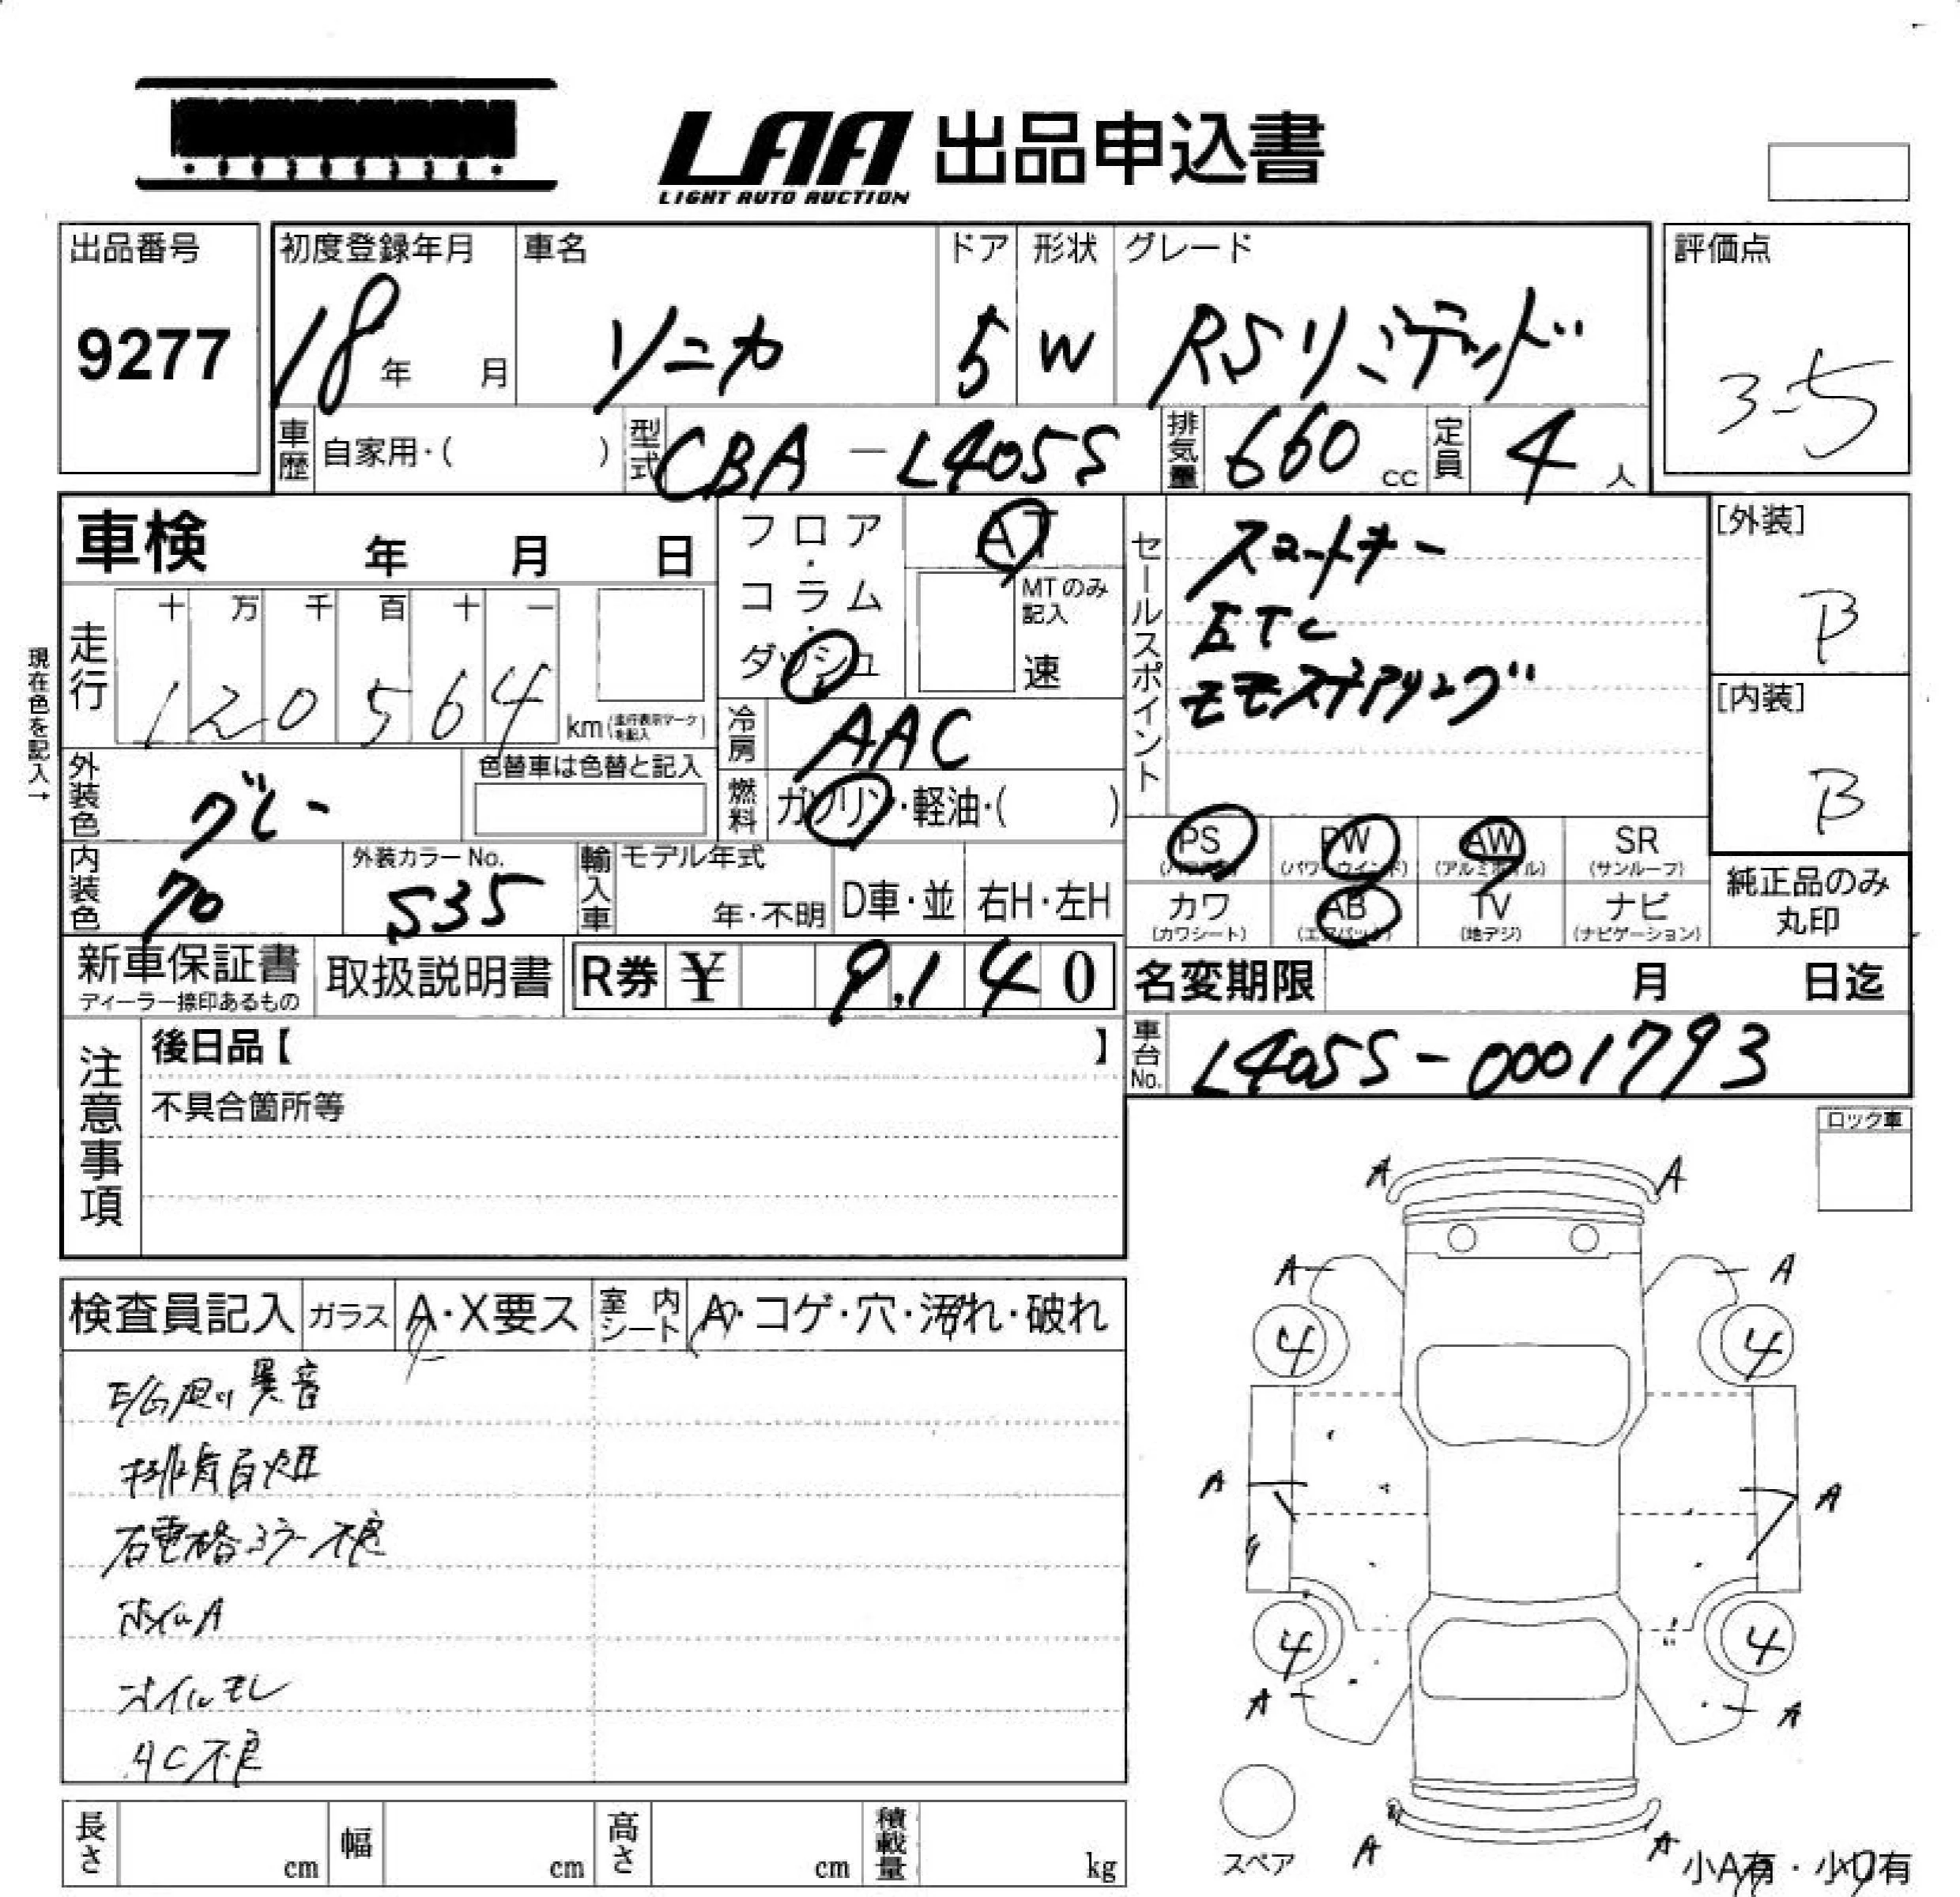 LAA 出品申込書
LIGHT AUTO AUCTION
出品番号
9277
初度登録年月
18年 月
車名
ソニカ
ドア
5
形状
W
グレード
RSリミテッド
評価点
3-5
車歴 自家用・( )
型式 CBA-L405S
排気量 660 cc
定員 4 人
車検 年 月 日
フロア・コラム・ダッシュ
AT
MTのみ記入
速
セールスポイント
スマートキー
ETC
モモステアリング
[外装]
B
[内装]
B
現在色を記入→
走行
十 万 千 百 十 一
1 2 0 5 6 4
km(走行表示マークを記入)
冷房 AAC
外装色 グレー
色替車は色替と記入
燃料 ガソリン・軽油・( )
PS AW SR
(パワステ)
PW
(パワーウインド)
(アルミホイル) (サンルーフ)
カワ AB TV ナビ
(カワシート) (エアバッグ) (地デジ) (ナビゲーション)
純正品のみ丸印
内装色 70
外装カラーNo.
S35
輸入車
モデル年式
年・不明
D車・並
右H・左H
新車保証書
ディーラー捺印あるもの
取扱説明書
R券 ¥ 9,140
名変期限 月 日迄
車台No. L405S-0001793
注意事項
後日品【 】
不具合箇所等
ロック車
検査員記入
ガラス A・X要ス
室内シート A・コゲ・穴・汚れ・破れ
E/G廻り異音
排気白煙
右電格ミラー不良
ホイルA
オイルモレ
AC不良
A A
A A
4 4
A A
4 4
A A
A A
スペア
小A有・小U有
長さ cm
幅 cm
高さ cm
積載量 kg